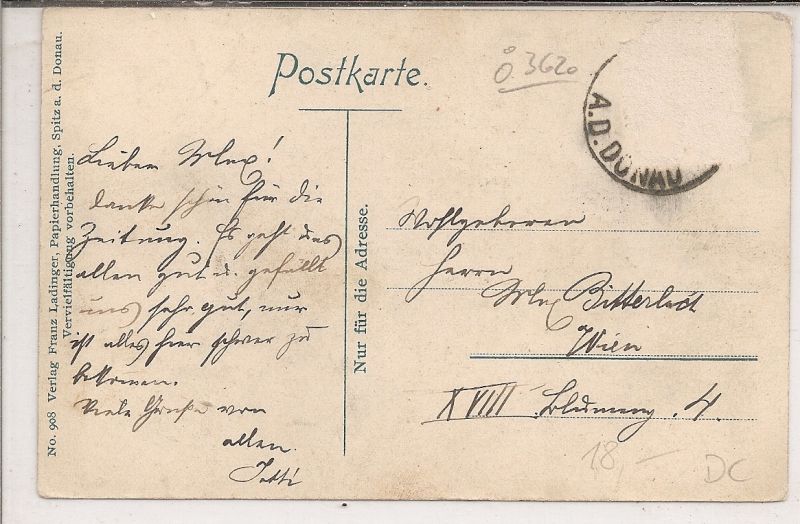 No. 908 Verlag Franz Ladinger, Papierhandlung, Spitz a. d. Donau.
Vervielfältigung vorbehalten.
Postkarte.
Ö 3620
A.D.DONAU
Lieber Max!
Danke schön für die
Zeitung. Es geht uns
allen gut u. gefällt
uns sehr gut, nur
ist alles hier schwer zu
bekommen.
Viele Grüße von
allen.
Nur für die Adresse.
Wohlgeboren
Herrn
Max Bitterlich
Wien
XVIII 4.
18,—
DC